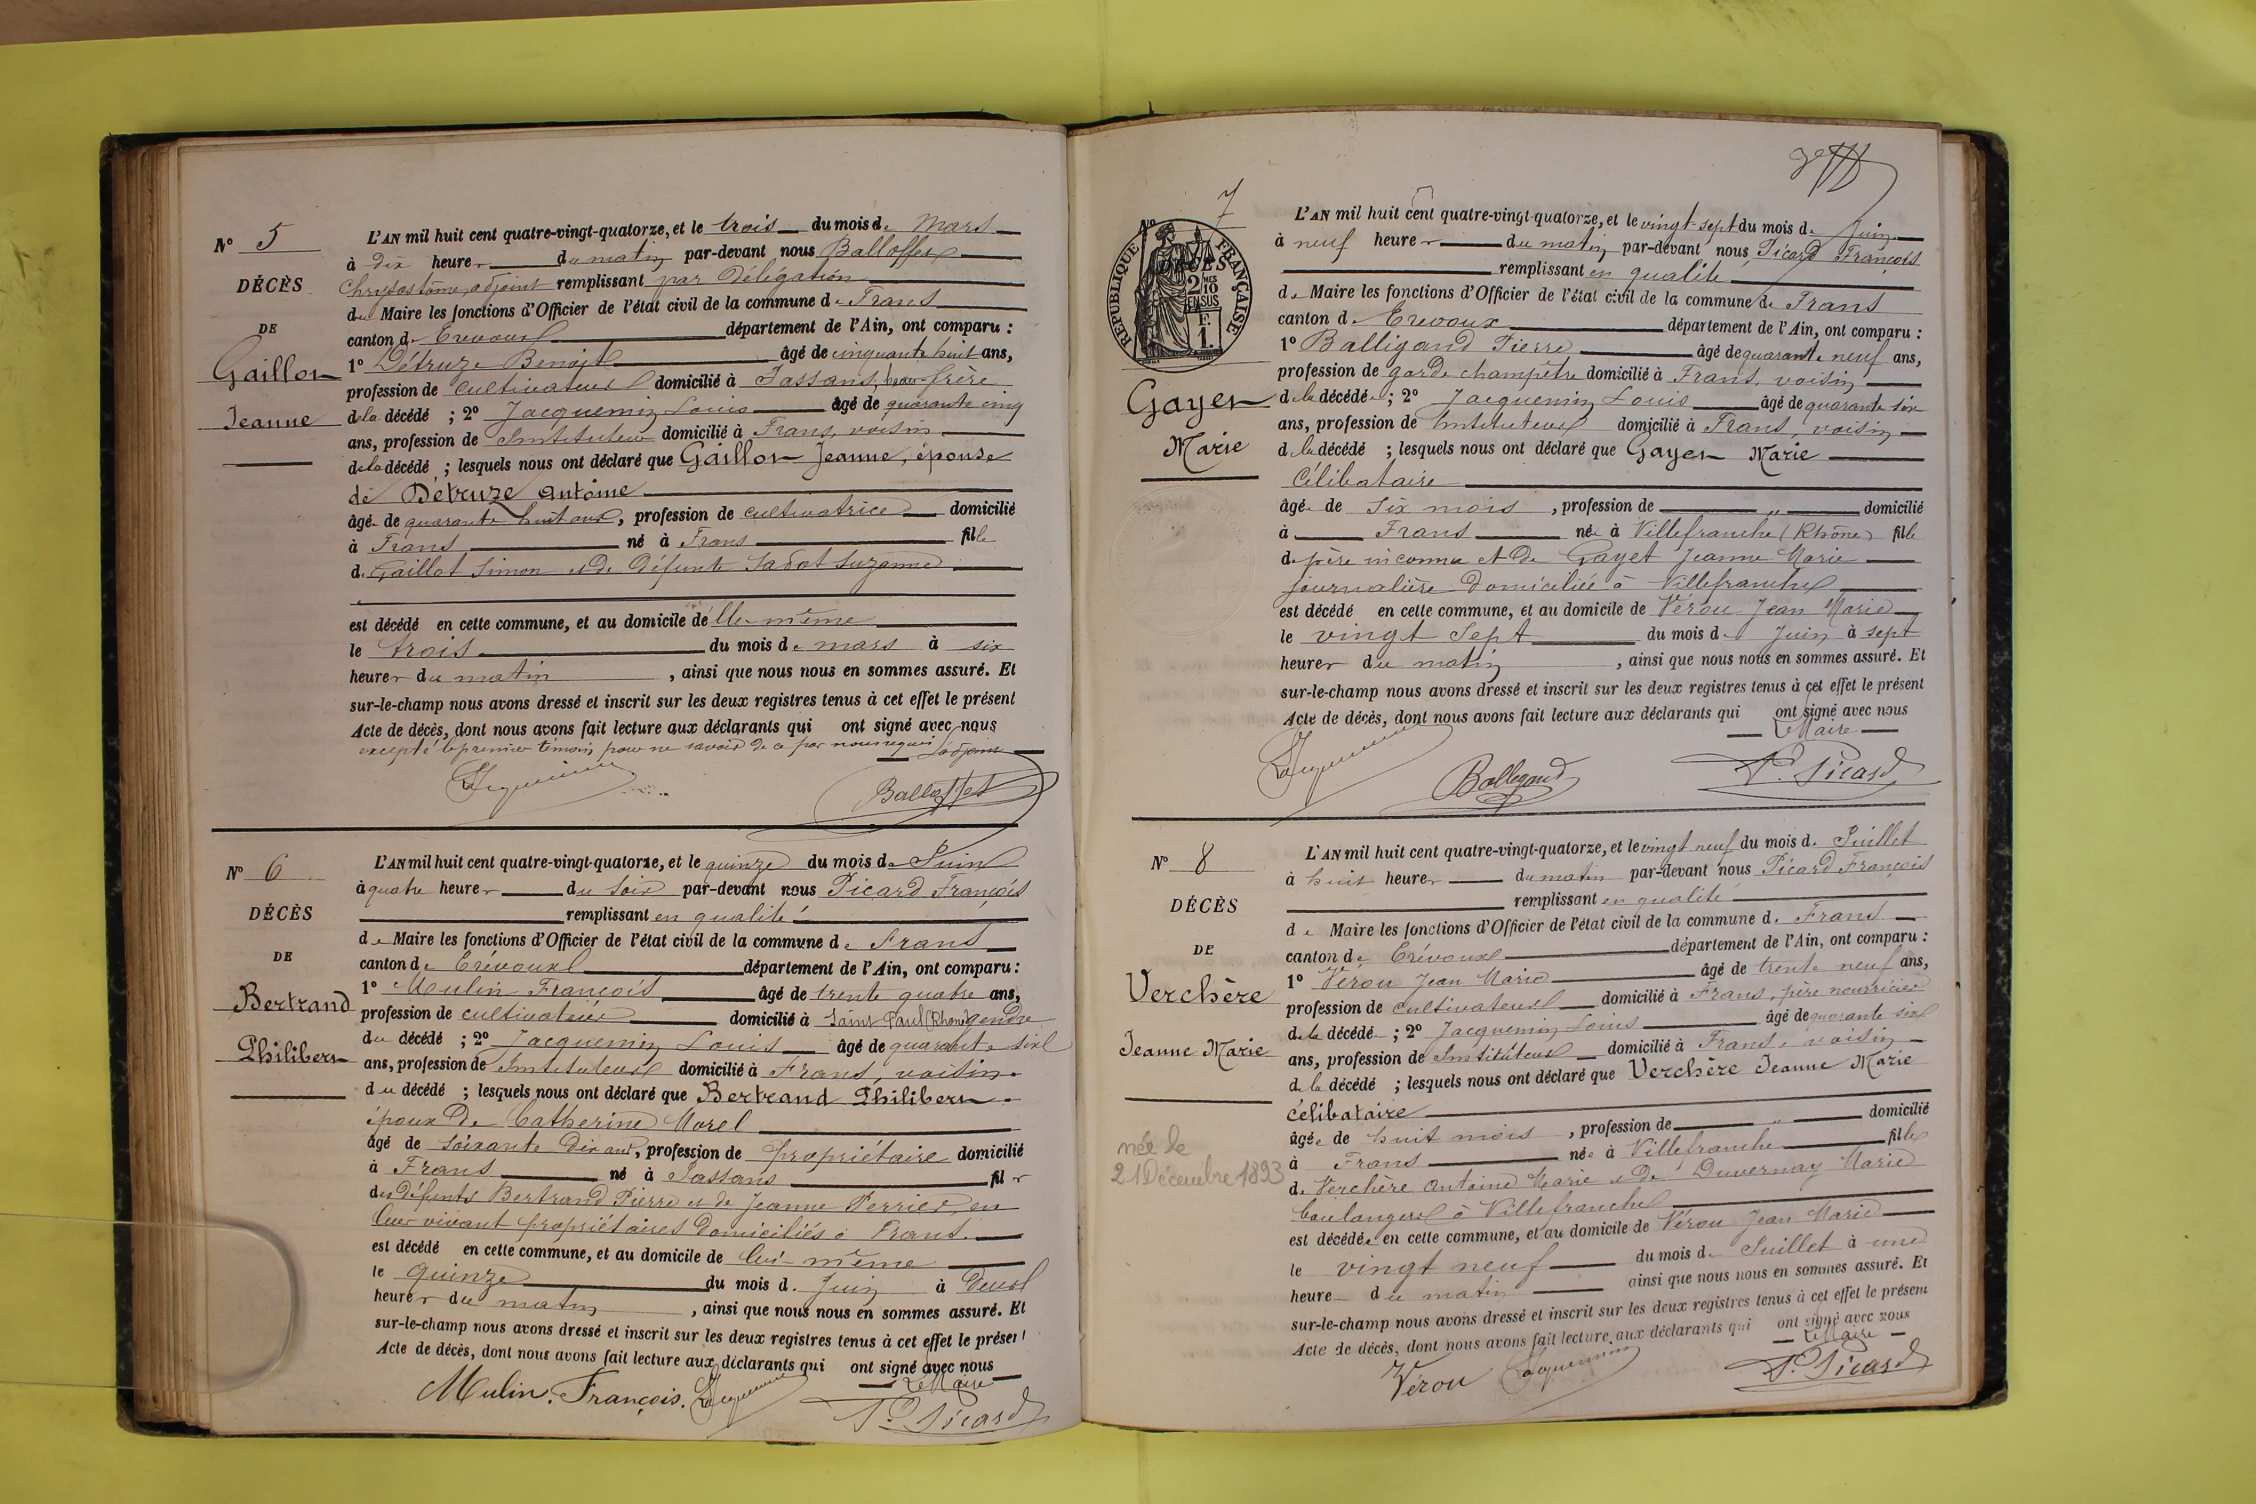 N° 5
DÉCÈS
DE
Gaillot
Jeanne
L'AN mil huit cent quatre-vingt-quatorze, et le trois du mois de Mars
à dix heures du matin par-devant nous Balloffet
Chrysostôme, adjoint remplissant par Délégation
de Maire les fonctions d'Officier de l'état civil de la commune de Frans
canton de Trévoux département de l'Ain, ont comparu :
1° Détruze Benoit âgé de cinquante huit ans,
profession de cultivateur domicilié à Jassans, beau-frère
de la décédé ; 2° Jacquemin Louis âgé de quarante cinq
ans, profession de Instituteur domicilié à Frans, voisin
de la décédé ; lesquels nous ont déclaré que Gaillot Jeanne, épouse
de Détruze Antoine
âgé de quarante huit ans, profession de cultivatrice domicilié
à Frans né à Frans fille
de Gaillot Simon et de défunte Sadot Suzanne
est décédé en cette commune, et au domicile d'elle-même
le trois du mois de mars à six
heures du matin, ainsi que nous nous en sommes assuré. Et
sur-le-champ nous avons dressé et inscrit sur les deux registres tenus à cet effet le présent
Acte de décès, dont nous avons fait lecture aux déclarants qui ont signé avec nous
excepté le premier témoin pour ne savoir de ce par nous requis L'adjoint
Jacquemin
Balloffet
N° 6
DÉCÈS
DE
Bertrand
Philibert
L'AN mil huit cent quatre-vingt-quatorze, et le quinze du mois de Juin
à quatre heures du soir par-devant nous Picard François
remplissant en qualité
de Maire les fonctions d'Officier de l'état civil de la commune de Frans
canton de Trévoux département de l'Ain, ont comparu :
1° Mulin François âgé de trente quatre ans,
profession de cultivateur domicilié à Saint Paul (Rhône) gendre
du décédé ; 2° Jacquemin Louis âgé de quarante six
ans, profession de Instituteur domicilié à Frans, voisin
du décédé ; lesquels nous ont déclaré que Bertrand Philibert
époux de Catherine Morel
âgé de soixante dix ans, profession de propriétaire domicilié
à Frans né à Jassans fils
des défunts Bertrand Pierre et de Jeanne Perrier, en
leur vivant propriétaires domiciliés à Frans.
est décédé en cette commune, et au domicile de lui-même
le quinze du mois de Juin à deux
heures du matin, ainsi que nous nous en sommes assuré. Et
sur-le-champ nous avons dressé et inscrit sur les deux registres tenus à cet effet le présent
Acte de décès, dont nous avons fait lecture aux déclarants qui ont signé avec nous
Le Maire
Mulin François. Jacquemin
P. Picard
7
RÉPUBLIQUE FRANÇAISE
N°
DÉCÈS
2 10MES
EN SUS
F.
1.
Gayet
Marie
L'AN mil huit cent quatre-vingt-quatorze, et le vingt-sept du mois de Juin
à neuf heures du matin par-devant nous Picard François
remplissant en qualité
de Maire les fonctions d'Officier de l'état civil de la commune de Frans
canton de Trévoux département de l'Ain, ont comparu :
1° Balligand Pierre âgé de quarante neuf ans,
profession de garde champêtre domicilié à Frans, voisin
de la décédée ; 2° Jacquemin Louis âgé de quarante six
ans, profession de Instituteur domicilié à Frans, voisin
de la décédé ; lesquels nous ont déclaré que Gayet Marie
Célibataire
âgée de six mois, profession de " domicilié
à Frans née à Villefranche (Rhône) fille
de père inconnu et de Gayet Jeanne Marie
journalière domiciliée à Villefranche
est décédé en cette commune, et au domicile de Vérou Jean Marie
le vingt sept du mois de Juin à sept
heures du matin, ainsi que nous nous en sommes assuré. Et
sur-le-champ nous avons dressé et inscrit sur les deux registres tenus à cet effet le présent
Acte de décès, dont nous avons fait lecture aux déclarants qui ont signé avec nous
Le Maire
Jacquemin
Balligand
P. Picard
N° 8
DÉCÈS
DE
Verchère
Jeanne Marie
née le
21 Décembre 1893
L'AN mil huit cent quatre-vingt-quatorze, et le vingt neuf du mois de Juillet
à huit heures du matin par-devant nous Picard François
remplissant en qualité
de Maire les fonctions d'Officier de l'état civil de la commune de Frans
canton de Trévoux département de l'Ain, ont comparu :
1° Vérou Jean Marie âgé de trente neuf ans,
profession de cultivateur domicilié à Frans, père nourricier
de la décédée ; 2° Jacquemin Louis âgé de quarante six
ans, profession de Instituteur domicilié à Frans, voisin
de la décédé ; lesquels nous ont déclaré que Verchère Jeanne Marie
Célibataire
âgée de huit mois, profession de " domicilié
à Frans née à Villefranche fille
de Verchère Antoine Marie et de Duvernay Marie
boulangers à Villefranche
est décédée en cette commune, et au domicile de Vérou Jean Marie
le vingt neuf du mois de Juillet à une
heure du matin ainsi que nous nous en sommes assuré. Et
sur-le-champ nous avons dressé et inscrit sur les deux registres tenus à cet effet le présent
Acte de décès, dont nous avons fait lecture aux déclarants qui ont signé avec nous
Le Maire
Vérou Jacquemin
P. Picard